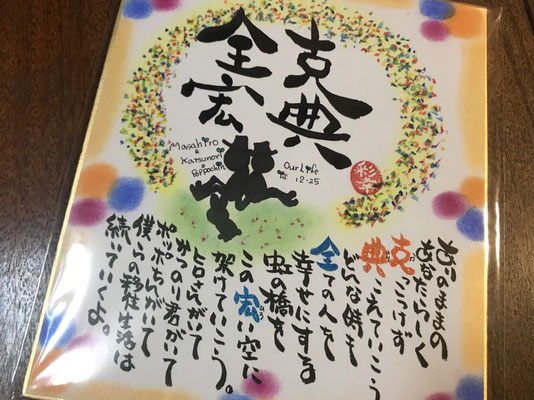 克典
全宏
Masahiro
&
Katsunori
&
Poppochin
Our Life
is
12.25
彩幸
ありのままの
あなたらしく
克っこつけず
典こえていこう
どんな時も
全ての人を
幸せにする
虹の橋を
この宏い空に
架けていこう。
ヒロさんがいて
かつのり君がいて
ポッポちんがいて
僕らの移住生活は
続いていくよ。